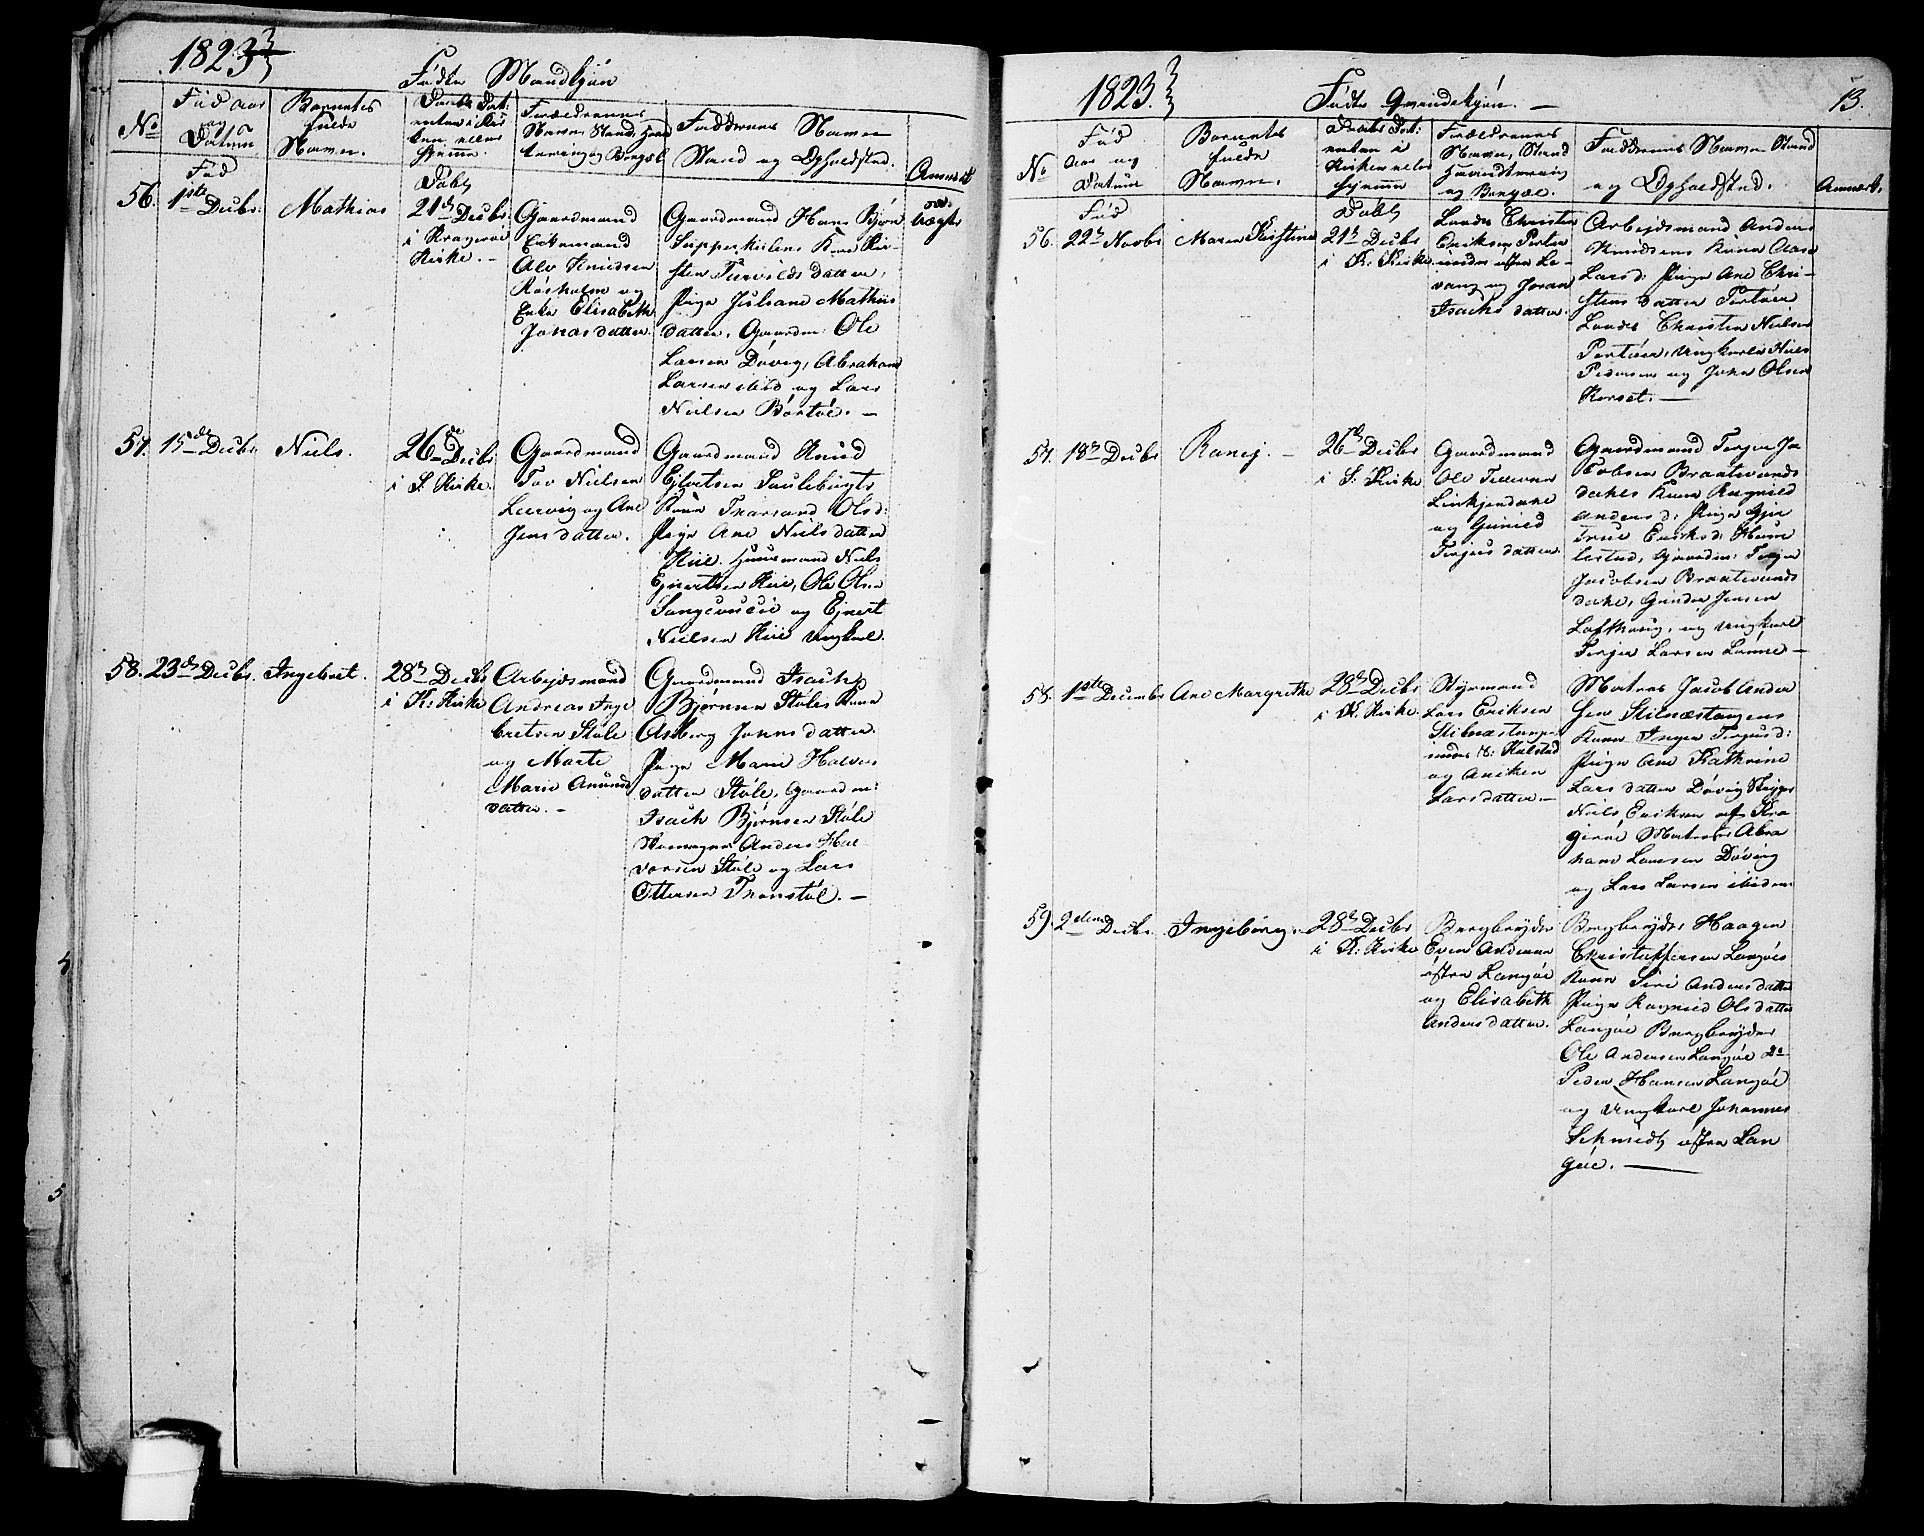 1823
Fødte Mandkjøn
No
Fød aar
og
Datum
Barnets
fulde
Navn.
Forældrenes
Navne, Stand, Haand
tæring og Bopæl
Faddernes Navne
Stand og Opholdsted.
Anmærk
56.
Fød
1ste Decbr.
Mathias
Døbt
21de Decbr.
i Kragerøe
Kirke. -
Gaardmand
Enkemand
Alv Knudsen
og
Enke Elisabeth
Jonasdatter.
Gaardmand Hans Bjørn
Kone Kir-
sten datter,
Pige Juliane Mathias
datter, Gaardm: Ole
Larsen Døvig, Abraham
Larsen ibid og Lars
Nielsen Børtøe. -
57.
15de Decbr
Niels.
26de Decbr
i S. Kirke.
Gaardmand
Tov Nielsen
Leervig og Ane
Jensdatter.
Gaardmand Knud
Kone Olsd:
Pige Ane Nielsdatter
Kiil. Huusmand Niels
Ejvertsen Kiil, Ole Olsen
og Ejvert
Nielsen Kiil Ungkarl.
58.
23de Decbr.
Ingebret.
28de Decbr
i K: Kirke
Arbejdsmand
Andreas Inge
bretsen Støle
og Marte
Marie Amund
datter. -
Gaardmand Isach
Bjørnsen Støles Kone
Asberg Jonasdatter
Pige Marie Halvors
datter Støle, Gaardm:
Isach Bjørnsen Støle
Anders Hal-
vorsen Støle og Lars
Ottersen Tronstøl. -
1823.
Fødte Qvindekjøn. -
13.
No
Fød
Aar og
Datum
Barnets
fulde
Navn.
Daabs Dat:
enten i
Kirken eller
hjemme
Forældrenes
Navne, Stand
Haandtæring
og Bopæl.
Faddernes Navne Stand
og Opholdsted.
Anmærk.
56.
Fød
22de Novbr
Maren Kirstine
Døbt
21de Decbr
i K: Kirke.
Lods Christen
Eriksen Portør
og Joran
Isachsdatter.
Arbejdsmand Anders
Knudsens Kone Aase
Larsd: Pige Ane Chri-
stensdatter Portør
Lods Christen Nielsen
Portøer, Ungkarle Niels
Pedersen og John Olsen
Korset. -
57.
18de Decbr
Ranej. -
26de Decbr
i S: Kirke
Gaardmand
Ole
og Gunild
Terjesdatter
Gaardmand Terjer Ja
cobsen Braatevands
Kone Ragnild
Andersd: Pige Gjer
True Eriksd: Hum
lestad, Gaardm: Terjer
Jacobsen Braatevands
Gunder Jensen
Lofthuus, og Ungkarl
Terjer Larsen Lønne -
58.
1ste Decembr
Ane Margrethe
28de Decbr
i K: Kirke
Styrmand
Lars Eriksen
Stilnæstangen
og Aniken
Larsdatter. -
Matros Jacob Ander
sen Stilnæstangens
Kone Inger Terjesd:
Pige Ane Kathrine
Larsdatter Døvig Skipper
Niels Eriksen af Kra
gerøe Matros Abra
ham Larsen Døvig
og Lars Larsen ibidem
59.
2den Decbr.
Ingeborg. -
28de Decbr
i K: Kirke
Bergbryder
Even Andersen
østre Langøe
og Elisabeth
Andersdatter.
Bergbryder Haagen
Christophersen Langøes
Kone Siri Andersdatter
Pige Ragnild Olsdatter
Langøe Bergbryder
Ole Andersen Langøe Do
Peder Hansen Langøe
og Ungkarl Johannes
Schmidt østre Lan
gøe. -